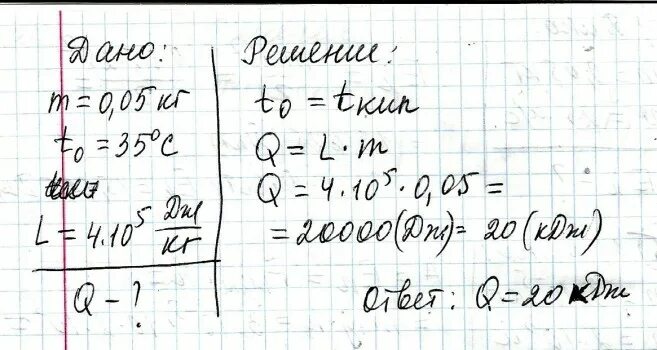 Дано:
m = 0,05 кг
t₀ = 35°C
L = 4·10⁵ Дж/кг
Q - ?
Решение:
t₀ = tкип
Q = L · m
Q = 4·10⁵·0,05 =
= 20000 (Дж) = 20 (кДж)
Ответ: Q = 20 кДж